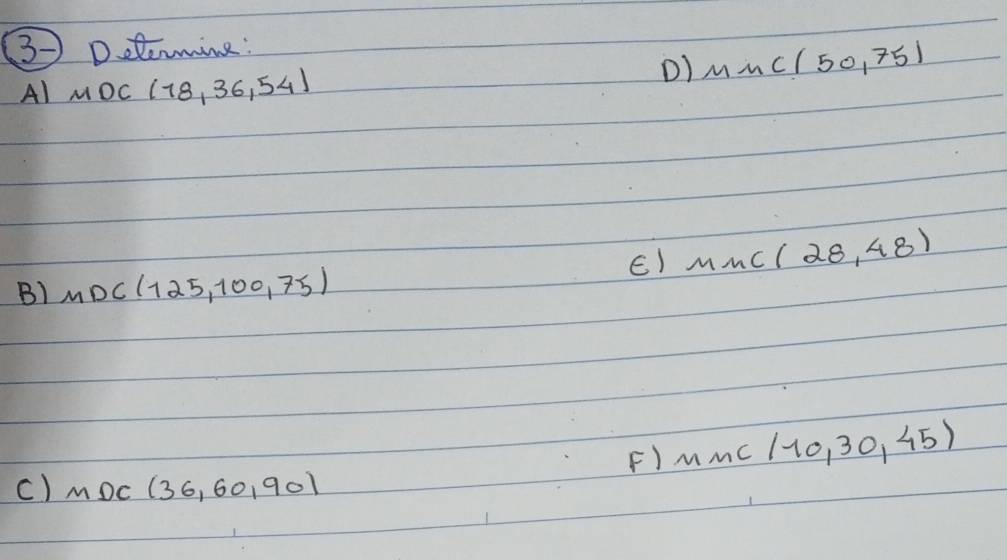 3-) Determine:
A) MDC (18, 36, 54)
B) MDC (125, 100, 75)
C) MDC (36, 60, 90)
D) MMC (50, 75)
E) MMC (28, 48)
F) MMC (10, 30, 45)